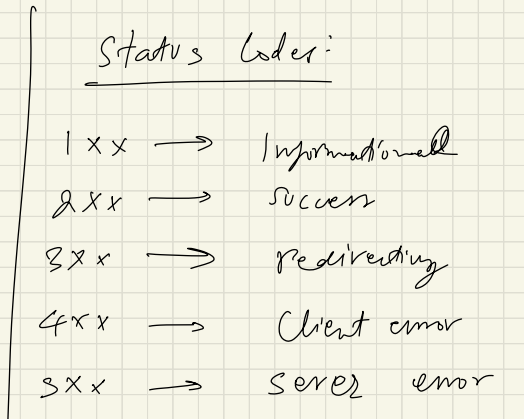 Status Codes:
1xx → Informational
2xx → Success
3xx → redirecting
4xx → Client error
5xx → Server error